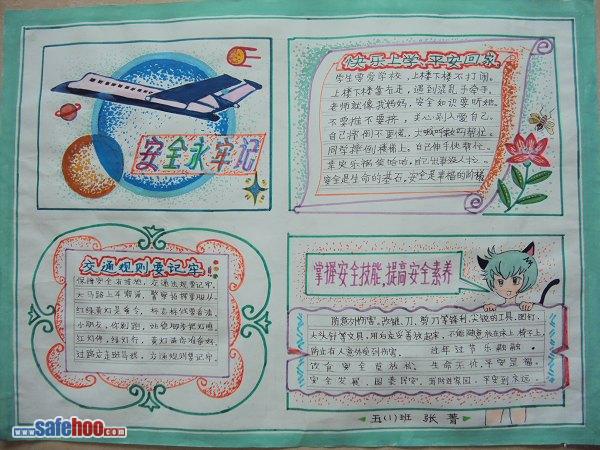 安全永牢记
快乐上学、平安回家
学生要爱学校，上楼下楼不打闹。
上楼下楼靠右走，遇到混乱手牵手。
老师就像我妈妈，安全知识要听她。
不要推不要挤，关心别人爱自己。
自己摔倒不要慌，
同学摔倒楼梯上，自己伸手快帮忙。
安全是生命的基石，安全是幸福的阶梯
交通规则要记牢
保障安全有措施，交通法规要记牢。
大马路上车辆多，
红绿黄灯是命令，
小朋友，你别跑，站稳脚步把灯瞧
红灯停，绿灯行，黄灯请你准备好
过路应走斑马线，交通规则要记牢
掌握安全技能，提高安全素养
防意外伤害。铁锥、刀、剪刀等锋利、尖锐的工具，图钉、
大头针等文具，用后应妥善放起来，不能随意放在床上、椅子上，
防止有人意外受到伤害。 过年过节乐融融
饮食安全莫放松 生命无价，平安是福。
安全发展，国泰民安。
五(1)班 张菁
www.safehoo.com